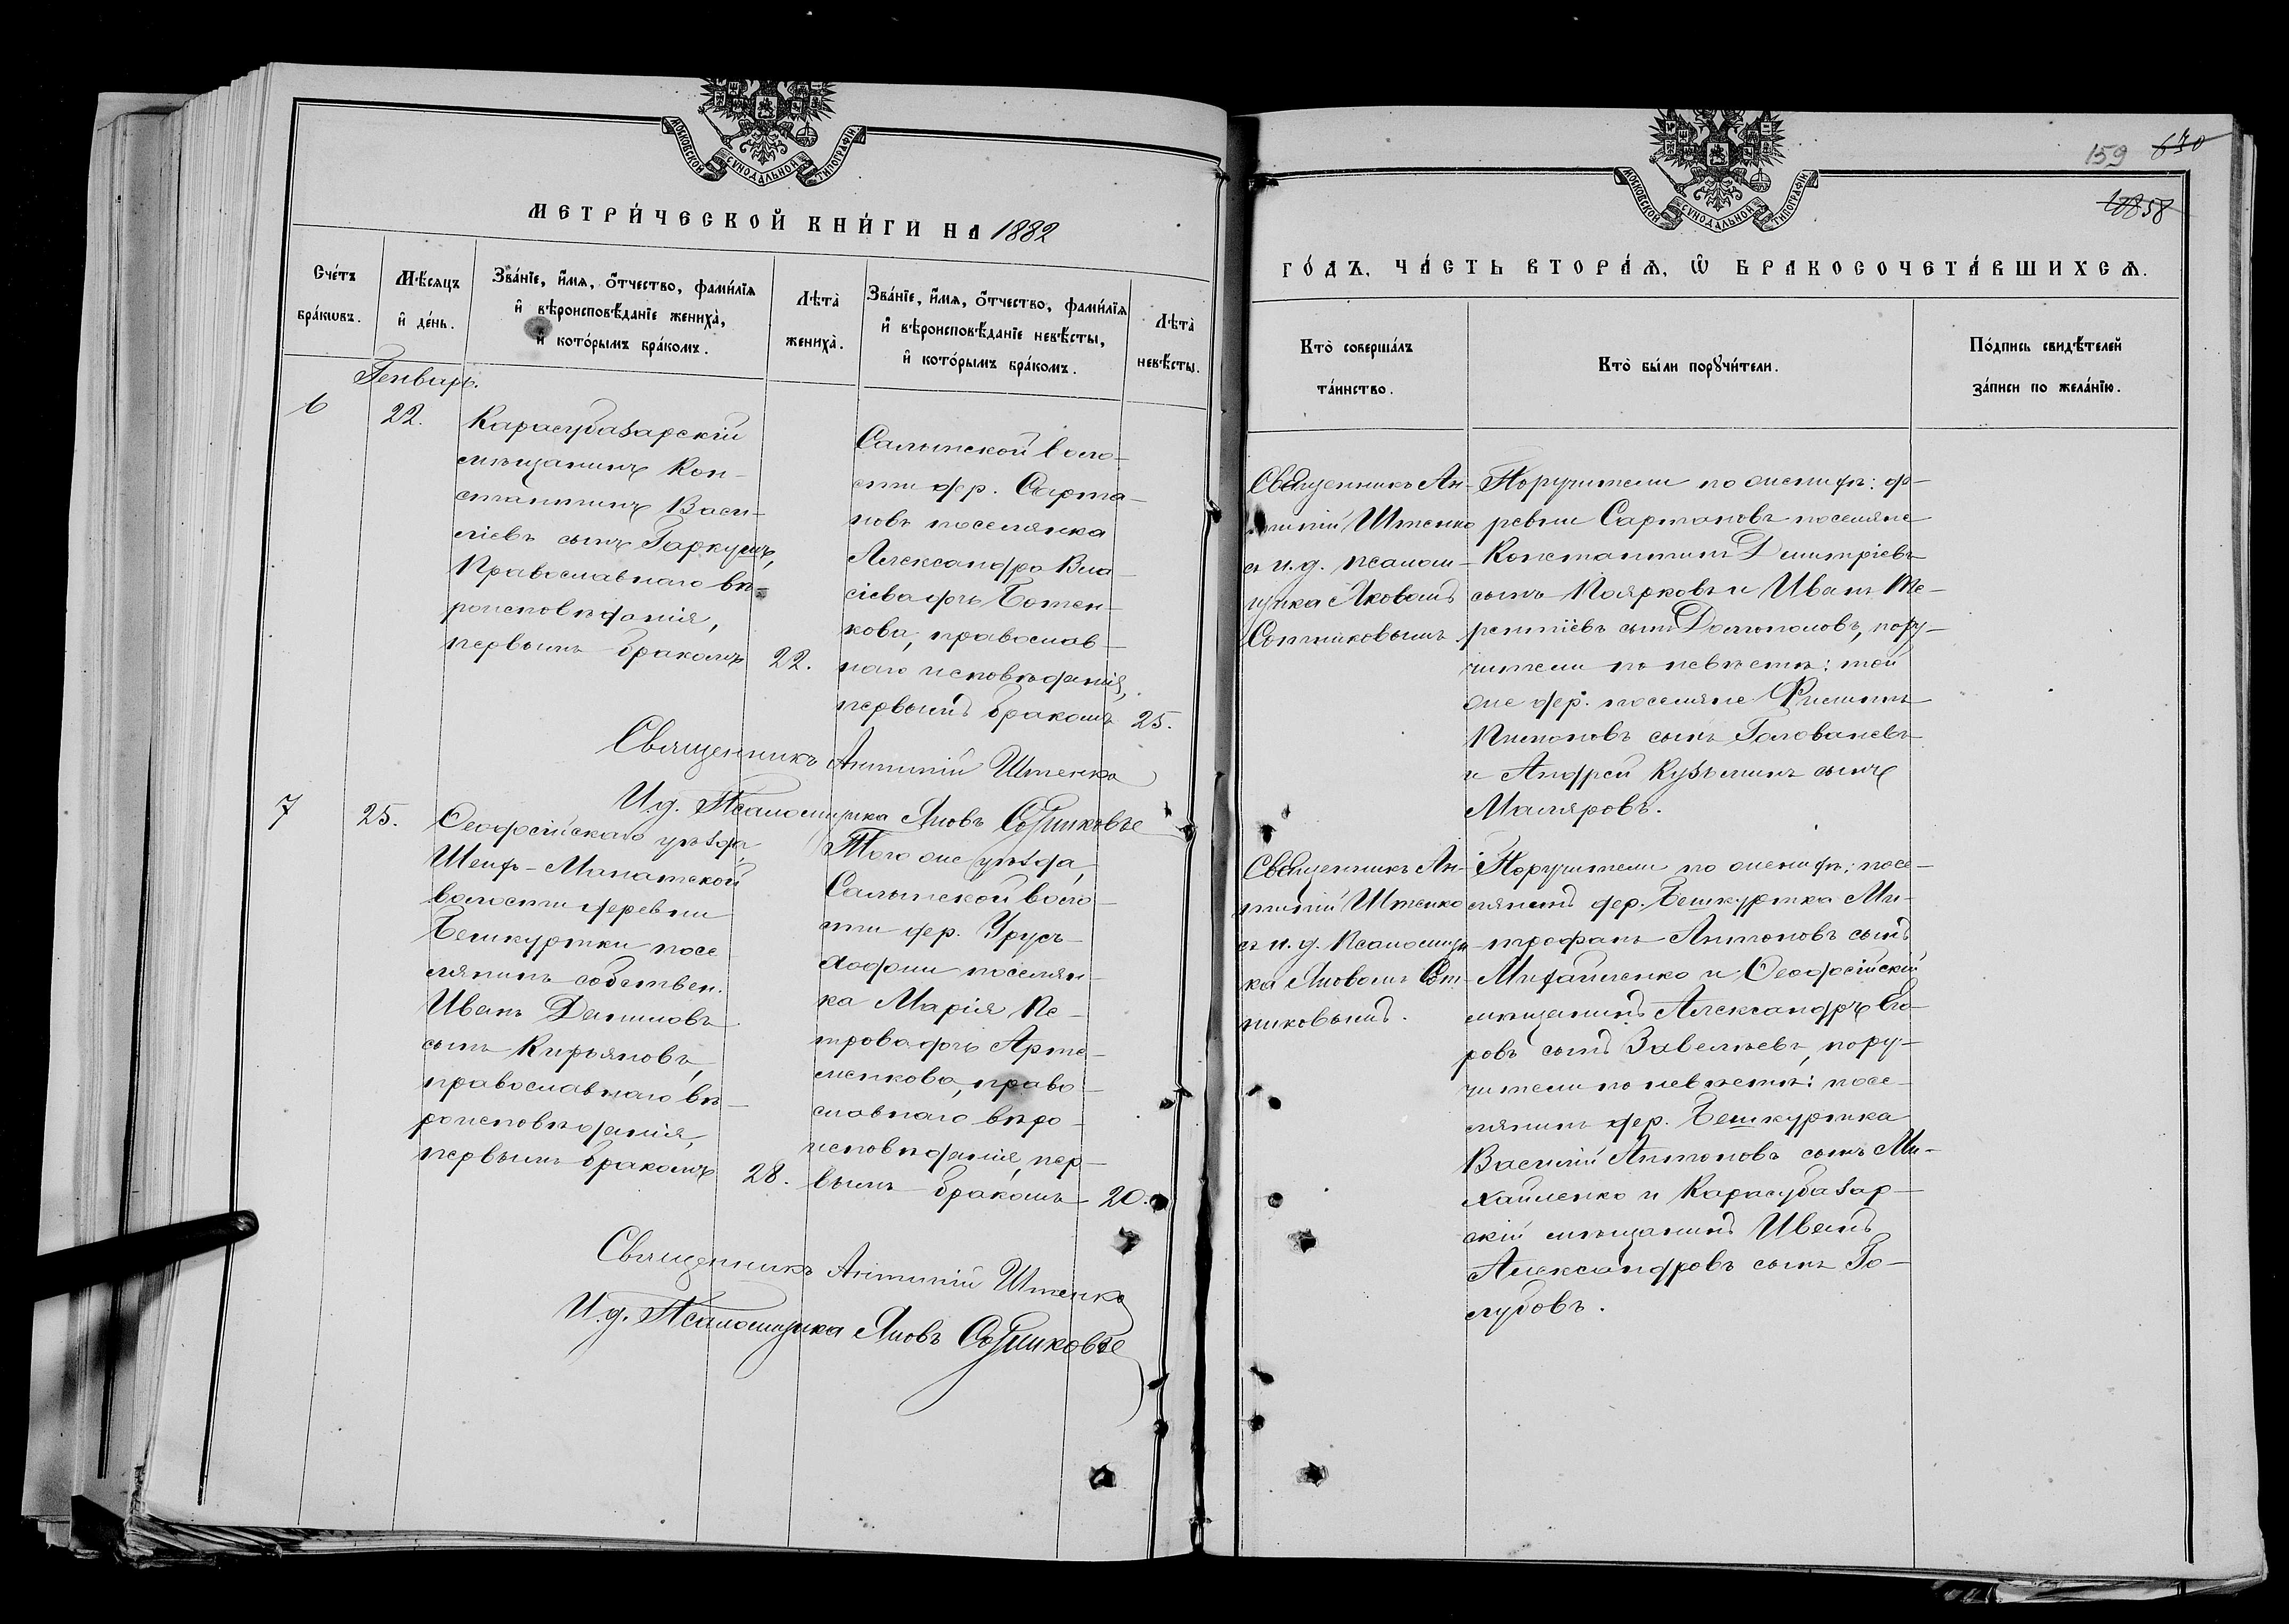 МОСКОВСКОЙ СУНОДАЛЬНОЙ ТИПОГРАФІИ
МЕТРИ́ЧЕСКОЙ КНИ́ГИ НА 1882
Сче́тъ бра́кωвъ.
Мѣ́сяцъ и҆ де́нь.
Зва́нїе, и҆́мѧ, ѻ҆́тчество, фами́лїѧ
и҆ вѣроисповѣ́данїе жениха̀,
и҆ кото́рымъ бра́комъ.
Лѣта̀ жениха̀.
Зва́нїе, и҆́мѧ, ѻ҆́тчество, фами́лїѧ
и҆ вѣроисповѣ́данїе невѣ́сты,
и҆ кото́рымъ бра́комъ.
Лѣта̀ невѣ́сты.
Генварь.
6
22.
Карасубазарскій
мѣщанинъ Кон-
стантинъ Васи-
ліевъ сынъ
Православнаго вѣ-
роисповѣданія,
первымъ бракомъ
22.
Салынской воло-
сти дер. Сарта-
новъ поселянка
Александра Вла-
сіева дчь Ботен-
кова, православ-
наго исповѣданія,
первымъ бракомъ
25.
Священникъ Антипій Штенко
И.д. Псаломщика Яковъ Сотниковъ
7
25.
Ѳеодосійскаго уѣзда,
Шейх-Монатской
волости деревни
Бешкуртки посе
лянинъ собствен.
Иванъ Даниловъ
сынъ Кирьяновъ,
православнаго вѣ-
роисповѣданія,
первымъ бракомъ
28.
Того же уѣзда,
Салынской воло-
сти дер. Урусъ-
Ходжи поселян-
ка Марія Пе-
трова дчь Арте-
менкова, право-
славнаго вѣро-
исповѣданія, пер-
вымъ бракомъ
20.
Священникъ Антипій Штенко
И.д. Псаломщика Яковъ Сотниковъ
МОСКОВСКОЙ СУНОДАЛЬНОЙ ТИПОГРАФІИ
159 630
58
ГО́ДЪ, ЧА́СТЬ ВТОРА́Ѧ, Ѡ҆ БРАКОСОЧЕТА́ВШИХСѦ.
Кто̀ соверша́лъ
та́инство.
Кто̀ бы́ли порꙋчи́тели.
По́дпись свидѣ́телей
за́писи по жела́нїю.
Священникъ Ан-
типій Штенко
съ и.д. псалом-
щика Яковомъ
Сотниковымъ
Поручители по женихѣ: де-
ревни Сартановъ поселяне
Константинъ Димитріевъ
сынъ Поярковъ и Иванъ Те-
рентіевъ сынъ Долгополовъ, пору-
чители по невѣстѣ: той
же дер. поселяне Филиппъ
Пименовъ сынъ Голованевъ
и Андрей Кузьминъ сынъ
Маляровъ.
Священникъ Ан-
типій Штенко
съ и.д. Псаломщи-
ка Яковомъ Сот-
никовымъ.
Поручители по женихѣ: посе-
лянинъ дер. Бешкуртка Ми-
трофанъ Антоновъ сынъ
Михайленко и Ѳеодосійскій
мѣщанинъ Александръ Его-
ровъ сынъ Завелѣевъ, пору-
чители по невѣстѣ: посе-
лянинъ дер. Бешкуртка
Василій Антоновъ сынъ Ми-
хайленко и Карасубазар-
скій мѣщанинъ Иванъ
Александровъ сынъ Го-
лубовъ.